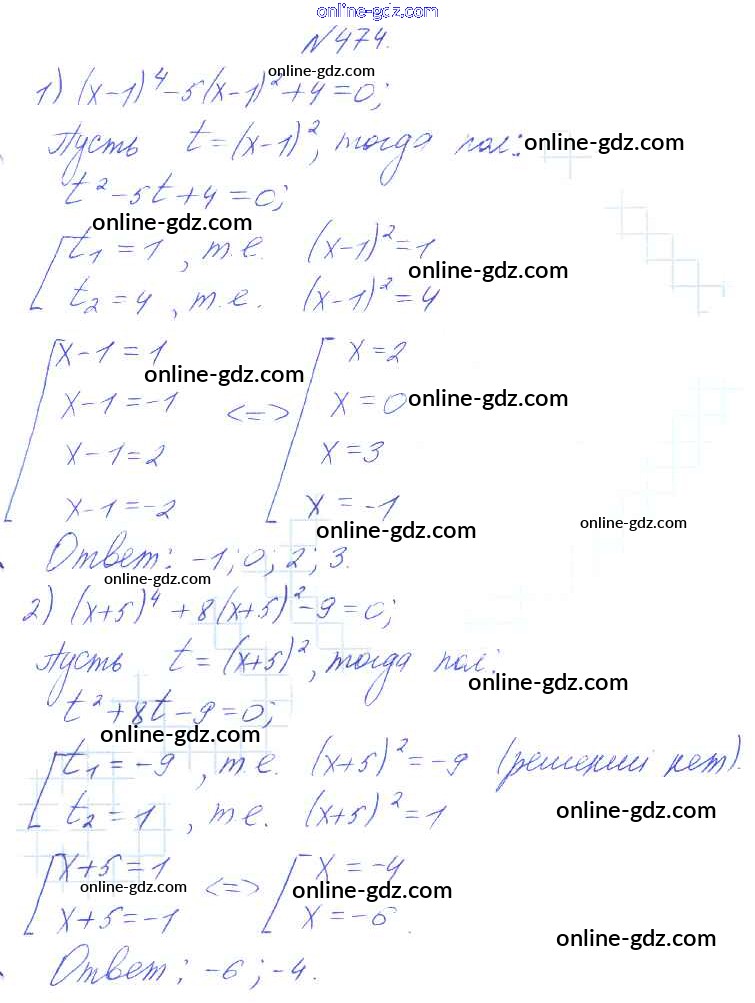 online-gdz.com
N474.
online-gdz.com
1) (x-1)^4 - 5(x-1)^2 + 4 = 0;
Пусть t = (x-1)^2, тогда пол: online-gdz.com
t^2 - 5t + 4 = 0;
online-gdz.com
t1 = 1, т.е. (x-1)^2 = 1
online-gdz.com
t2 = 4, т.е. (x-1)^2 = 4
x-1 = 1 x = 2
online-gdz.com
x-1 = -1 <=> x = 0 online-gdz.com
x-1 = 2 x = 3
x-1 = -2 x = -1
online-gdz.com online-gdz.com
Ответ: -1; 0; 2; 3.
online-gdz.com
2) (x+5)^4 + 8(x+5)^2 - 9 = 0;
Пусть t = (x+5)^2, тогда пол:
online-gdz.com
t^2 + 8t - 9 = 0;
online-gdz.com
t1 = -9, т.е. (x+5)^2 = -9 (решений нет).
t2 = 1, т.е. (x+5)^2 = 1 online-gdz.com
x+5 = 1 x = -4
online-gdz.com <=> online-gdz.com
x+5 = -1 x = -6.
online-gdz.com
Ответ: -6; -4.